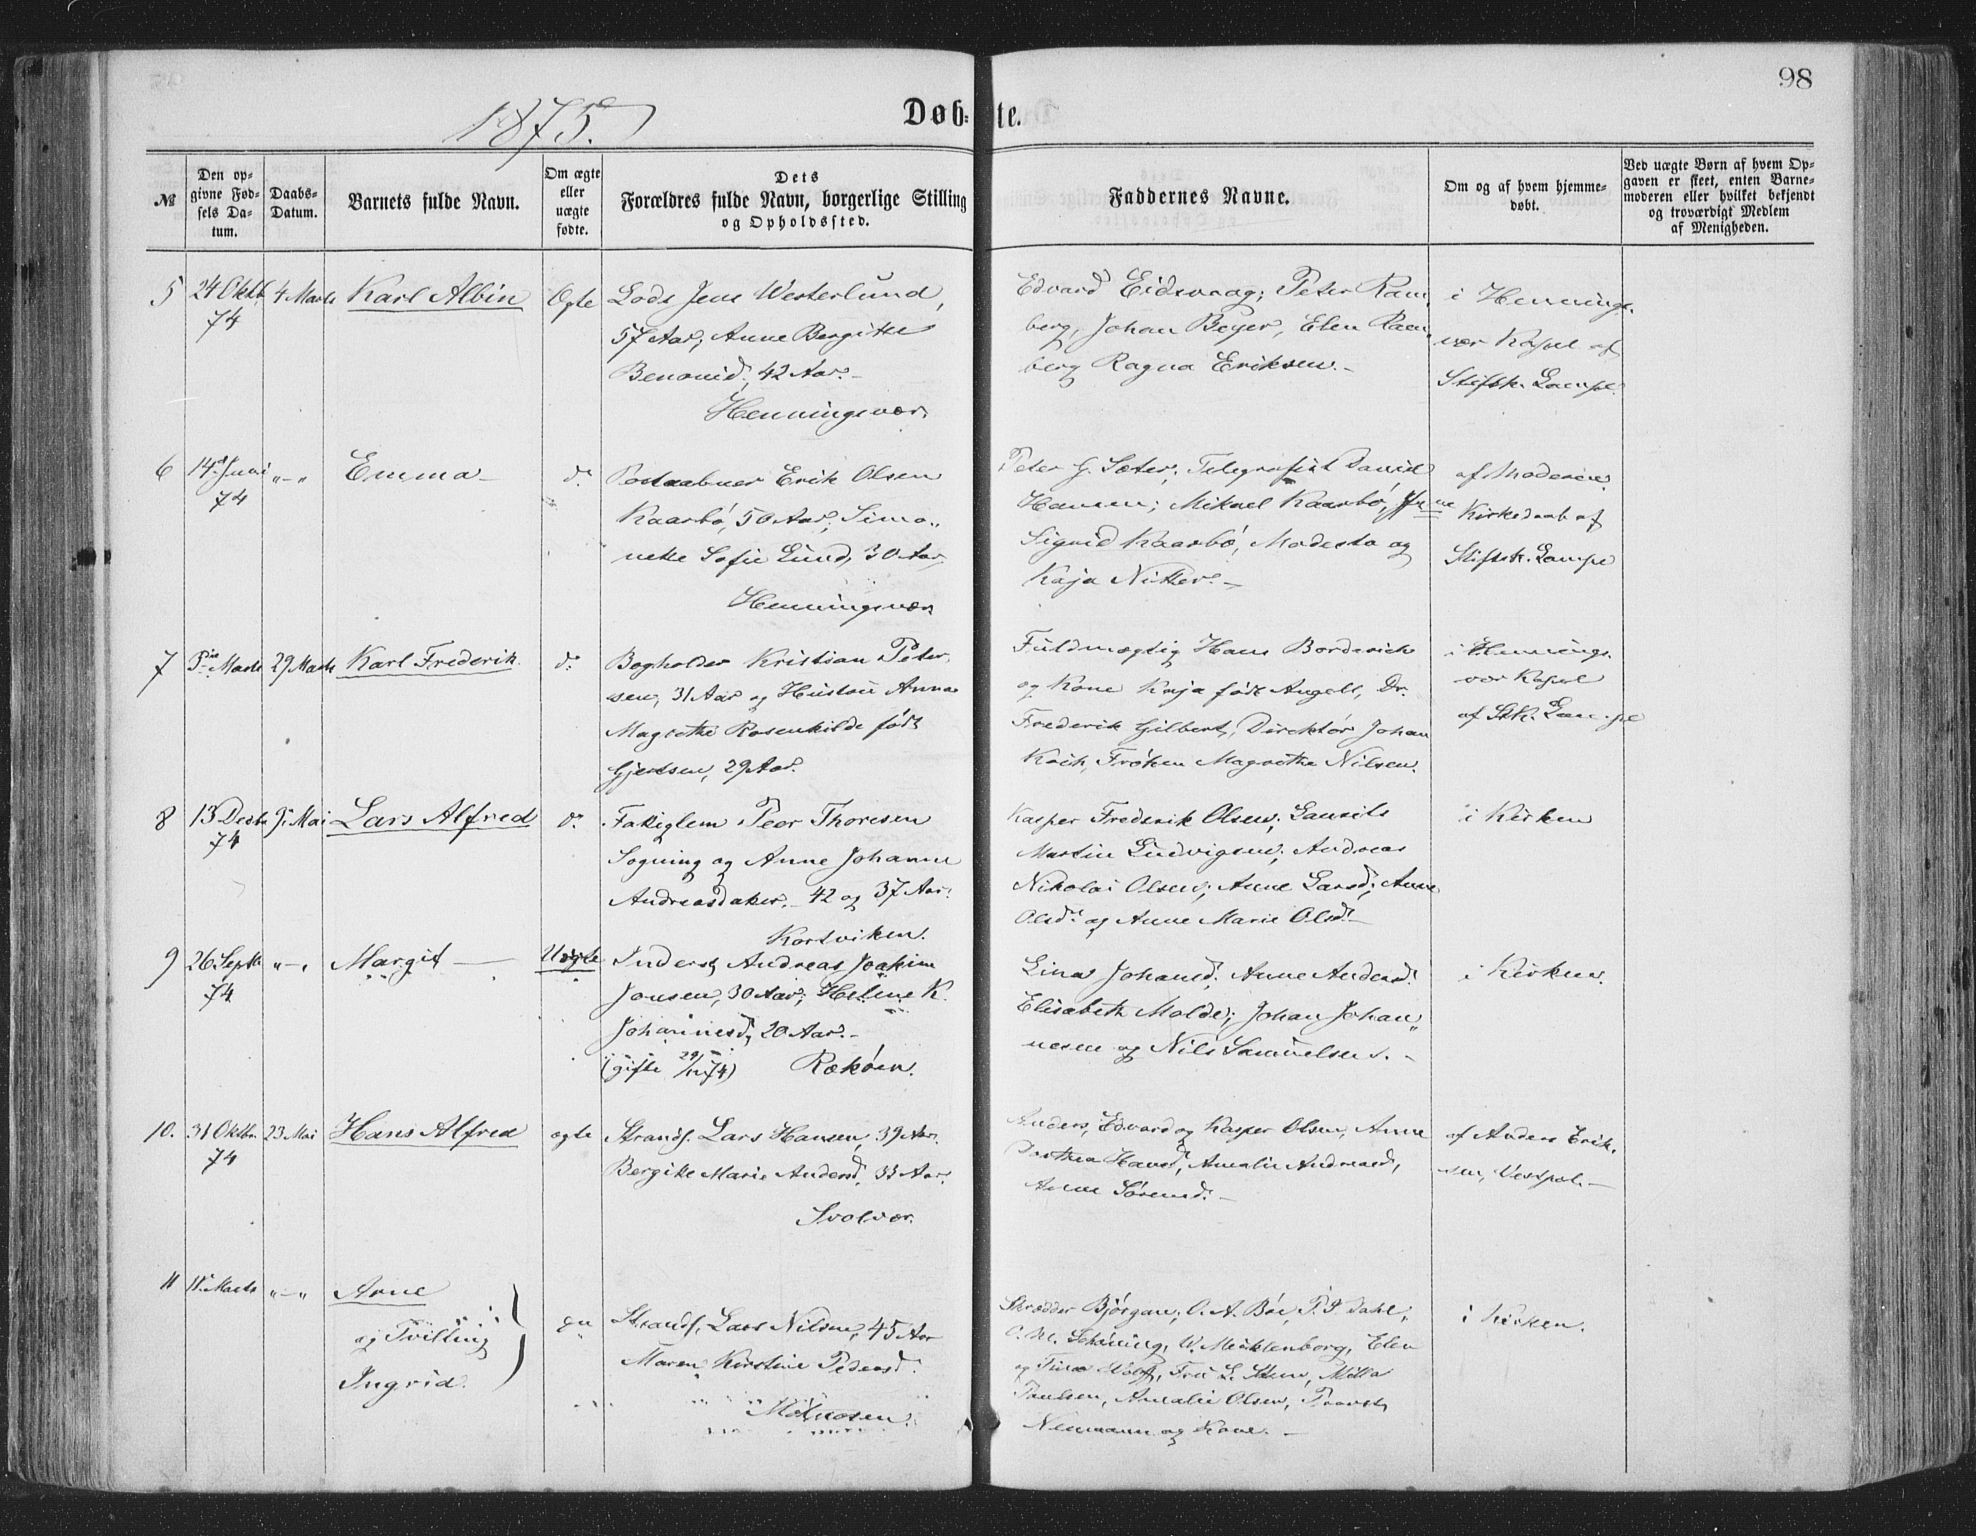 98
1875.
Døb-te.
№
Den op-
givne Fød-
sels Da-
tum.
Daabs-
Datum.
Barnets fulde Navn.
Om ægte
eller
uægte
fødte.
Dets
Forældres fulde Navn, borgerlige Stilling
og Opholdssted.
Faddernes Navne.
Om og af hvem hjemme-
døbt.
Ved uægte Børn af hvem Op-
gaven er skeet, enten Barne-
moderen eller hvilket bekjendt
og troværdigt Medlem
af Menigheden.
5
24 Oktb.
74
4 Marts
Karl Albin
Ægte
Lods Jens Westerlund,
57 Aar; Anne Bergitte
42 Aar.
Henningsvær.
Edvard Eidsvaag; Peter Ram
berg, Johan Beyer, Elen Ram
berg Ragna Eriksen.
i Hennings
vær Kapel af
Stiftsk. Lampe
6
14 Juni
74
„ - „
Emma
do
Postaabner Erik Olsen
Kaarbø, 50 Aar, Simo„
nette Sofie Lund, 30 Aar
Henningsvær
Peter G. Sæter, Telegrafist David
Hansen; Mikael Kaarbø,
Sigrid Kaarbø, Modesta og
Kaja Nitter.
af Moderen
Kirkedaab af
Stiftsk. Lampe
7
Marts
29 Marts
Karl Frederik
do
Bogholder Kristian Peter
sen, 31 Aar og Hustru Anna
Magrethe Rosenkilde født
Gjertsen, 29 Aar.
Fuldmægtig Hans Borderick
og Kone Kaja født Angell, Dr.
Frederik Gilbert, Direktør Johan
Frøken Magrethe Nilsen.
i Hennings
vær Kapel
af Stk. Lampe
8
13 Decbr
74
9 Mai
Lars Alfred
do
Peer Thoresen
og Anne Johanne
Andreasdatter. 42 og 37 Aar.
Kortviken.
Kasper Frederik Olsen; Laurits
Martin Ludvigsen; Andreas
Nikolai Olsen; Anne Larsd; Anne
Olsdr og Anne Marie Olsdr
i Kirken
9
26 Septb
74
„ - „
Margit
Uægte
Inderst Andreas Joakim
Jonsen, 30 Aar; Helene K.
Johannesd, 20 Aar.
(gifte 29/12 74) Rækøen.
Lina Johansd. Anne Andersd.
Elisabeth Molde; Johan Johan„
nesen og Nils Samuelsen.
i Kirken.
10.
31 Oktbr.
74
23 Mai
Hans Alfred
ægte
Strands. Lars Hansen, 39 Aar.
Bergitte Marie Andersd. 33 Aar.
Svolvær.
Anders, Edvard og Kasper Olsen, Anne
Dorthea Hansd, Amalie Andreasd,
Anne Sørensd.
af Anders Erik
sen, Vestpol.
11
11 Marts
„ - „
Arne
og Tvilling
Ingrid.
Strands. Lars Nilsen, 45 Aar
Maren Kirstine Pedersd.
Skrædder Bjørgan; O. A. Bøe, P. P. Dahl,
C. M. Schøning, W. Mecklenborg, Elen
og Tina Wolf, Fru L. Steen, Milla
Paulsen, Amalie Olsen, Provst
Neumann og Kone.
i Kirken.